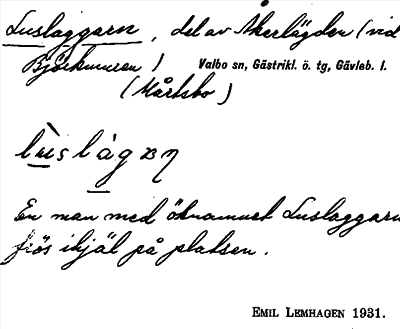 Luslaggarn, del av Åkerlägden (vid
Björkmuren)
Valbo sn, Gästrikl. ö. tg, Gävleb. l.
(Mårtsbo)
En man med öknamnet Luslaggarn
frös ihjäl på platsen.
EMIL LEMHAGEN 1931.